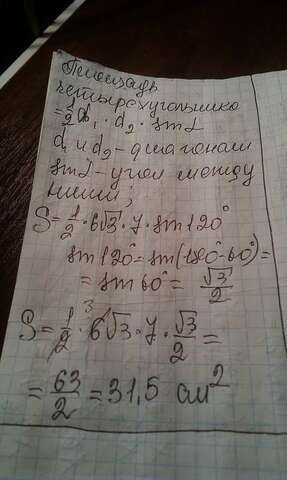 Площадь
четырехугольника
= 1/2 d₁ · d₂ · sin α
d₁ и d₂ - диагонали
sin α - угол между
ними;
S = 1/2 · 6√3 · 7 · sin 120°
sin 120° = sin (180° - 60°) =
= sin 60° = √3/2
S = 1/2 · 6 3 √3 · 7 · √3/2 =
= 63/2 = 31,5 см²